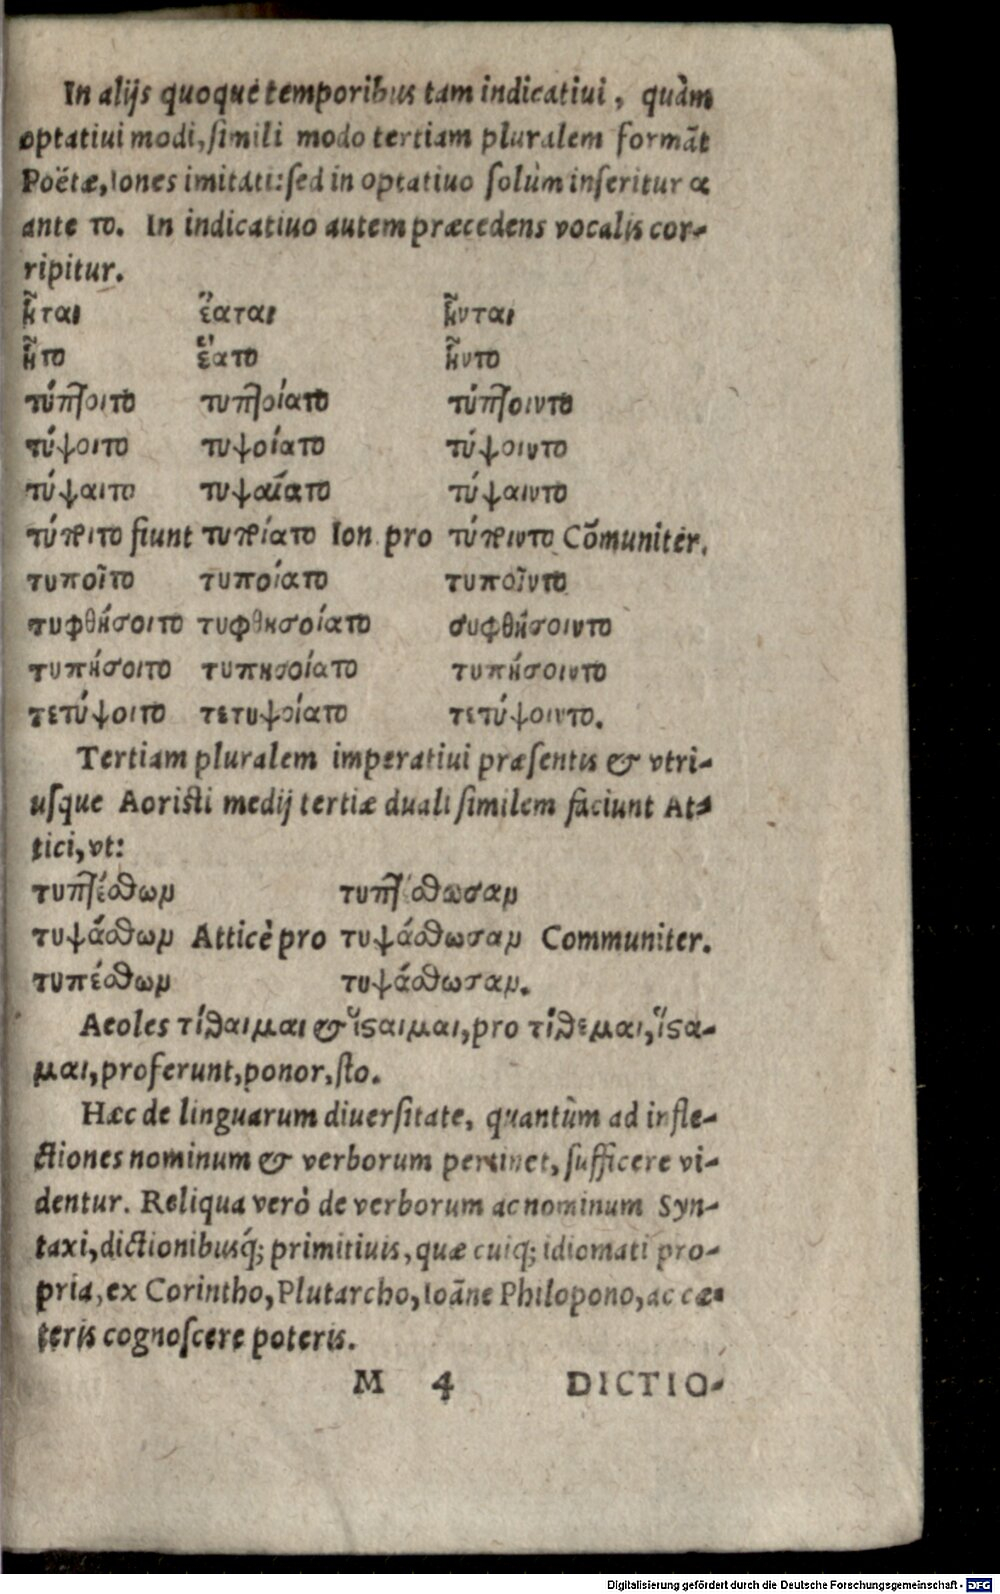 In alijs quoque temporibus tam indicatiui, quàm
optatiui modi, simili modo tertiam pluralem formāt
Poëtæ, Iones imitati: sed in optatiuo solùm inseritur α
ante το. In indicatiuo autem præcedens vocalis cor-
ripitur.
ἧται ἕαται ἧνται
ἧτο ἕατο ἧντο
τύπτοιτο τυπτοίατο τύπτοιντο
τύψοιτο τυψοίατο τύψοιντο
τύψαιτο τυψαίατο τύψαιντο
τύφοιτο fiunt τυφοίατο Ion. pro τύφοιντο Cōmuniter.
τυποῖτο τυποίατο τυποῖντο
τυφθήσοιτο τυφθησοίατο συφθήσοιντο
τυπήσοιτο τυπησοίατο τυπήσοιντο
τετύψοιτο τετυψοίατο τετύψοιντο.
Tertiam pluralem imperatiui præsentis & vtri-
usque Aoristi medij tertiæ duali similem faciunt At-
tici, vt:
τυπτέσθων τυπτέσθωσαν
τυψάσθων Atticè pro τυψάσθωσαν Communiter.
τυπέσθων τυψάσθωσαν.
Aeoles τίθαιμαι & ἵσταιμαι, pro τίθεμαι, ἵστα-
μαι, proferunt, ponor, sto.
Hæc de linguarum diuersitate, quantùm ad infle-
ctiones nominum & verborum pertinet, sufficere vi-
dentur. Reliqua verò de verborum ac nominum Syn-
taxi, dictionibusq́; primitiuis, quæ cuiq; idiomati pro-
pria, ex Corintho, Plutarcho, Ioāne Philopono, ac cæ-
teris cognoscere poteris.
M 4 DICTIO-
Digitalisierung gefördert durch die Deutsche Forschungsgemeinschaft - DFG